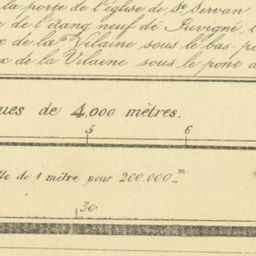 la porte de l'église de St Servan
de l'étang neuf de Juvigné,
de la Vilaine sous le bas
de la Vilaine sous le pont
ques de 4,000 mètres.
5 6
de 1 mètre pour 200.000m
30